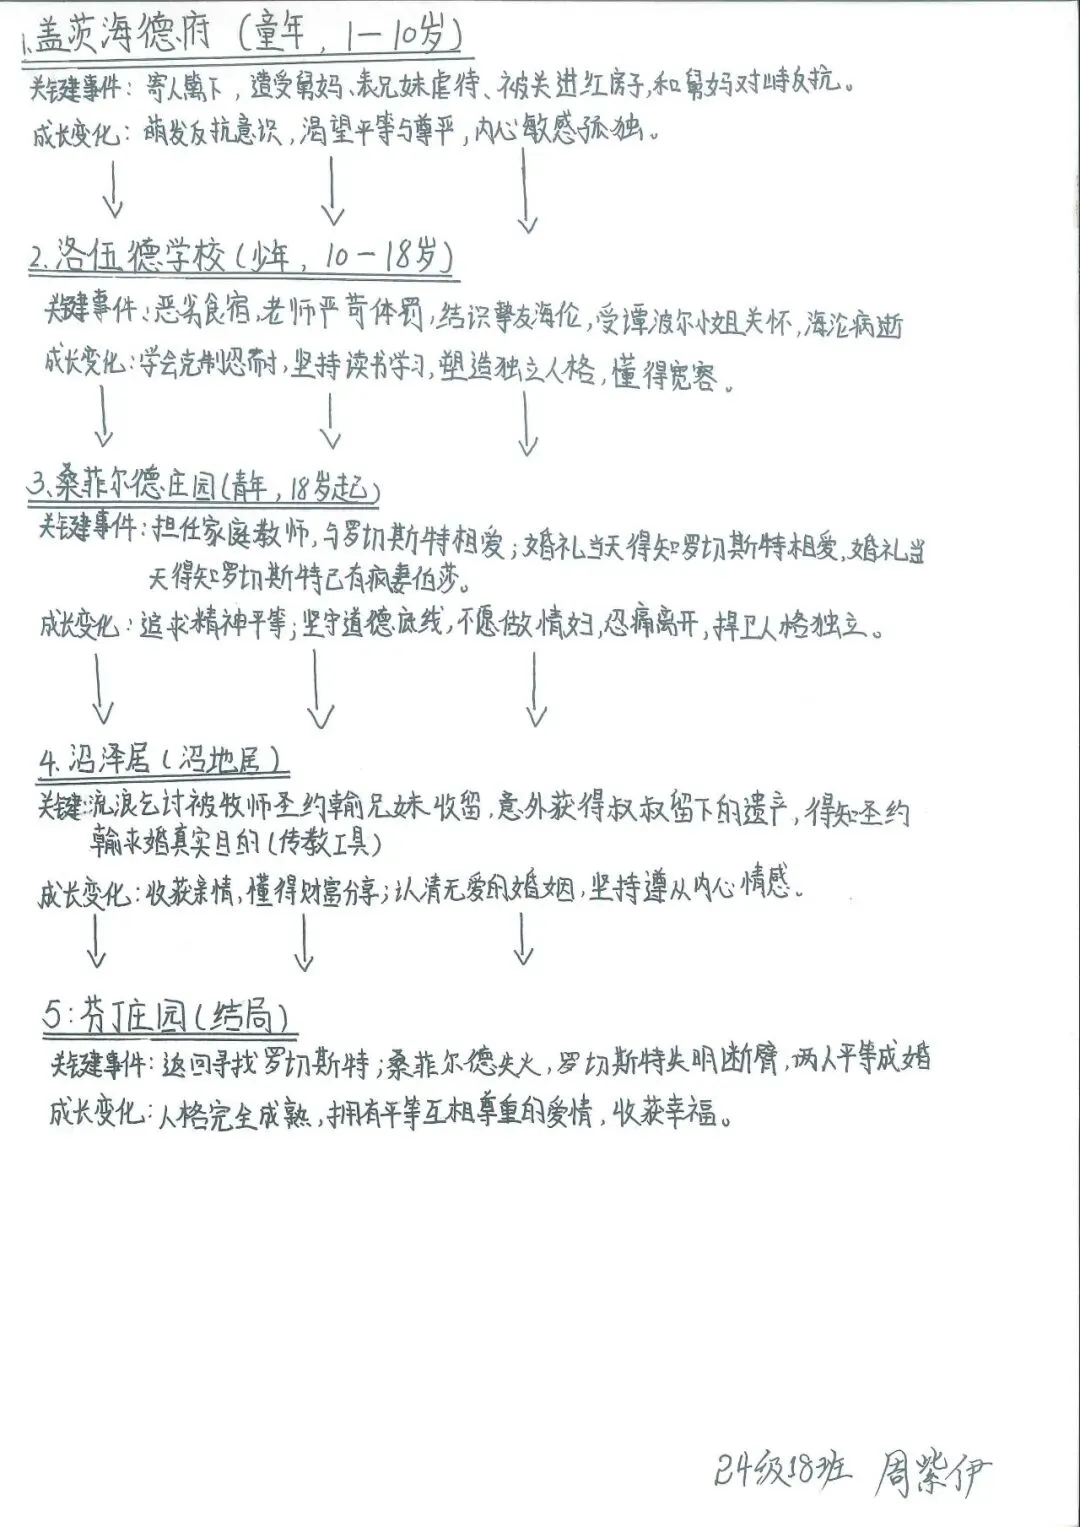 1.盖茨海德府（童年，1—10岁）
关键事件：寄人篱下，遭受舅妈、表兄妹虐待、被关进红房子,和舅妈对峙反抗。
成长变化：萌发反抗意识，渴望平等与尊严，内心敏感孤独。
2.洛伍德学校（少年，10—18岁）
关键事件：恶劣食宿，老师严苛体罚，结识挚友海伦，受谭波尔小姐关怀，海沦病逝
成长变化：学会克制忍耐，坚持读书学习，塑造独立人格，懂得宽容。
3.桑菲尔德庄园（青年，18岁起）
关键事件：担任家庭教师，与罗切斯特相爱；婚礼当天得知罗切斯特相爱，婚礼当
天得知罗切斯特已有疯妻伯莎。
成长变化：追求精神平等；坚守道德底线，不愿做情妇，忍痛离开，捍卫人格独立。
4.沼泽居（沼地居）
关键：流浪乞讨被牧师圣约翰兄妹收留，意外获得叔叔留下的遗产，得知圣约
翰求婚真实目的（传教工具）
成长变化：收获亲情，懂得财富分享；认清无爱的婚姻，坚持遵从内心情感。
5：芬丁庄园（结局）
关键事件：返回寻找罗切斯特；桑菲尔德失火，罗切斯特失明断臂，两人平等成婚
成长变化：人格完全成熟，拥有平等互相尊重的爱情，收获幸福。
24级18班 周紫伊